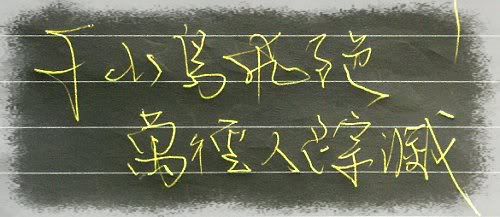 千山鳥飛絕
萬徑人蹤滅